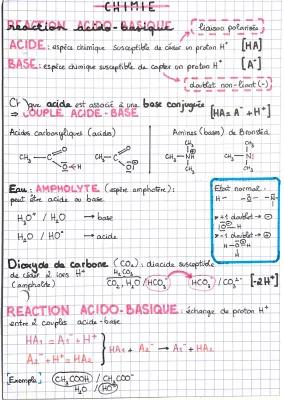 CHIMIE
RÉACTION ACIDO-BASIQUE
réaction acido-basique
liaison polarisée
ACIDE: espèce chimique susceptible de céder un proton H⁺ [HA]
BASE: espèce chimique susceptible de capter un proton H⁺ [A⁻]
doublet non-liant (-)
Chaque acide est associé à une base conjuguée
⇒ COUPLE ACIDE-BASE [HA ⇌ A⁻ + H⁺]
Acides carboxyliques (acide) Amines (bases) de Bronsted
CH₃ — C O O — H CH₃ — C O O⁻
CH₃ CH₃ — NH CH₃ CH₃ CH₃ — N CH₃
Eau: AMPHOLYTE (espèce amphotère):
peut être acide ou base
H₃O⁺ / H₂O → base
H₂O / HO⁻ → acide
État normal:
H- -O- -N-
* +1 doublet → ⊖
* -1 doublet → ⊕
Dioxyde de carbone (CO₂): diacide susceptible
de céder 2 ions H⁺ H₂CO₃
(ampholyte) CO₂, H₂O / HCO₃⁻ HCO₃⁻ / CO₃²⁻ [-2H⁺]
RÉACTION ACIDO-BASIQUE: échange de proton H⁺
entre 2 couples acide-base
HA₁ = A₁⁻ + H⁺
A₂⁻ + H⁺ = HA₂
HA₁ + A₂⁻ → A₁⁻ + HA₂
[Exemple] CH₃COOH / CH₃COO⁻
H₂O / HO⁻